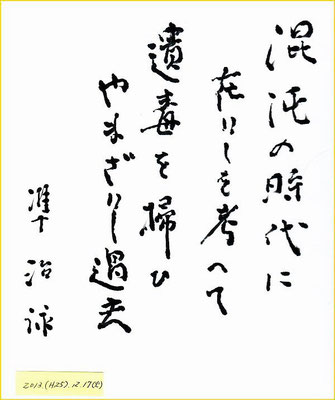 混沌の時代に
在りしを考へて
遺毒を掃ひ
やまざりし過去
準治詠
2013.(H25).12.17(火)